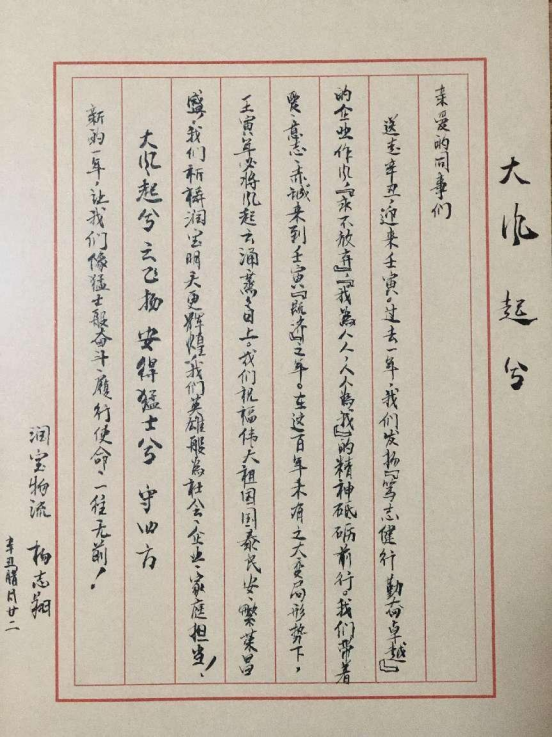 大风起兮
亲爱的同事们
送走辛丑，迎来壬寅。过去一年，我们发扬『笃志健行 勤奋卓越』
的企业作风，『永不放弃』，『我为人人，人人为我』的精神砥砺前行。我们带着
爱、意志、赤诚来到壬寅『既济』之年。在这百年未有之大变局形势下，
壬寅年必将风起云涌蒸蒸日上。我们祝福伟大祖国国泰民安、繁荣昌
盛，我们祈祷润宝明天更辉煌，我们英雄般为社会、企业、家庭担当！
大风起兮云飞扬 安得猛士兮 守四方
新的一年，让我们像猛士般奋斗、履行使命，一往无前！
润宝物流 杨志翔
辛丑腊月廿二